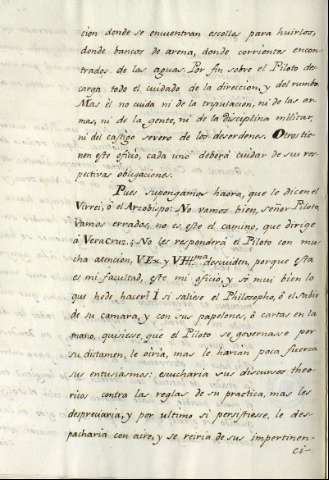 cion donde se encuentran escollos para huirlos,
donde bancos de arena, donde corrientes encon-
tradas de las aguas. Por fin sobre el Piloto des-
carga todo el cuidado de la direccion, y del rumbo.
Mas él no cuida ni de la tripulacion, ni de las ar-
mas, ni de la gente, ni de la disciplina militar,
ni del castigo severo de los desordenes. Otros tie-
nen este oficio, cada uno deberá cuidar de sus res-
pectivas obligaciones.
Pues supongamos haora, que le dicen el
Virrei, ó el Arzobispo: No vamos bien, señor Piloto,
vamos errados, no es este el camino, que dirige
á Veracruz. ¿No les responderá el Piloto con mu-
cha atencion, V.Ex. y V.Illma. descuiden, porque esta
es mi facultad, este mi oficio, y sé mui bien lo
que hede hacer? I si saliese el Philosopho, ó el sabio
de su camara, y con sus papelones, ó cartas en la
mano, quisiese, que el Piloto se governase por
su dictamen, le oiria, mas le harian poca fuerza
sus entusiasmos: escucharia sus discursos theo-
ricos contra las reglas de su practica, mas les
despreciaria, y por ultimo si persistiese, le des-
pacharia con aire, y se reiria de sus impertinen-
ci-